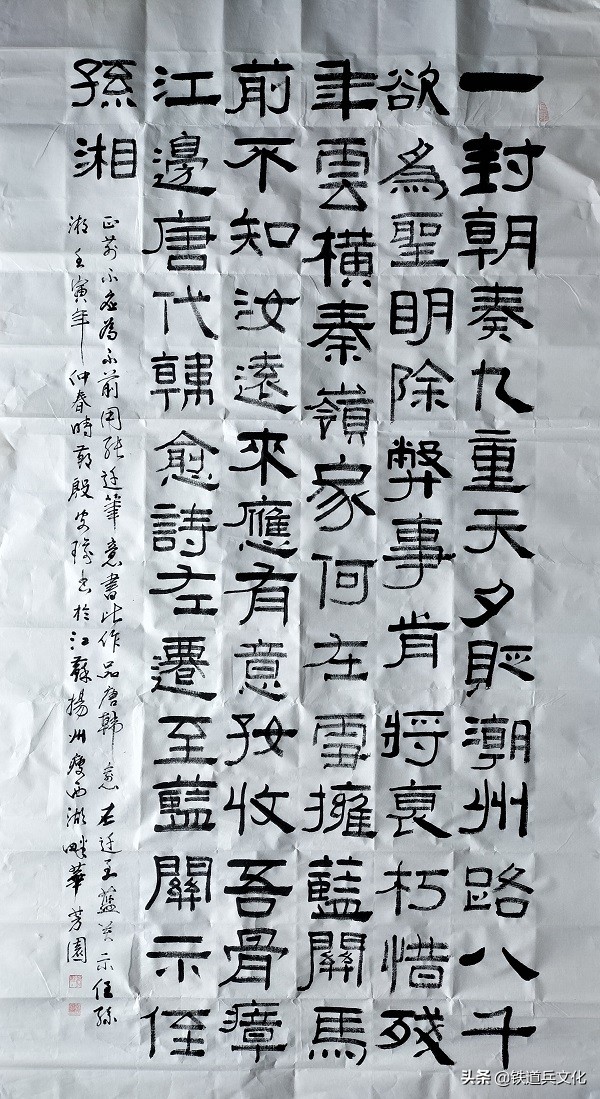 一封朝奏九重天夕貶潮州路八千
欲為聖明除弊事肯將衰朽惜殘
年雲橫秦嶺家何在雪擁藍關馬
前不知汝遠來應有意好收吾骨瘴
江邊唐代韓愈詩左遷至藍關示侄
孫湘
正前不應為不前用張迁筆意書此作品唐韓愈左迁至藍關示侄孫
湘壬寅年仲春時節殷書於江蘇揚州瘦西湖畔華芳園
头条 @铁道兵文化